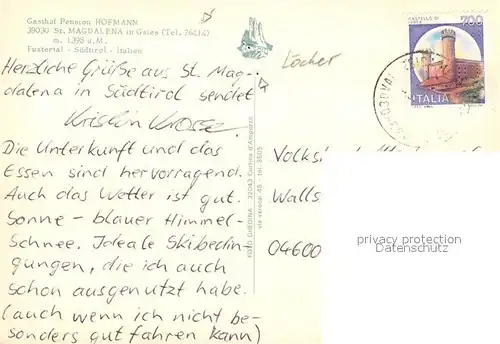 Gasthof Pension HOFMANN
39030 St. MAGDALENA in Gsies (Tel. 76414)
m. 1398 ü.M.
Pustertal - Südtirol - Italien
Herzliche Grüße aus St. Mag-
dalena in Südtirol sendet
Kristin Krosse.
Die Unterkunft und das
Essen sind hervorragend.
Auch das Wetter ist gut.
Sonne - blauer Himmel-
Schnee. Ideale Skibedin-
gungen, die ich auch
schon ausgenutzt habe.
(auch wenn ich nicht be-
sonders gut fahren kann)
FOTO GHEDINA - 32043 Cortina d'Ampezzo
Löcher
CASTELLO DI
700
ITALIA
Volksb
Walls
04600
privacy protection
Datenschutz